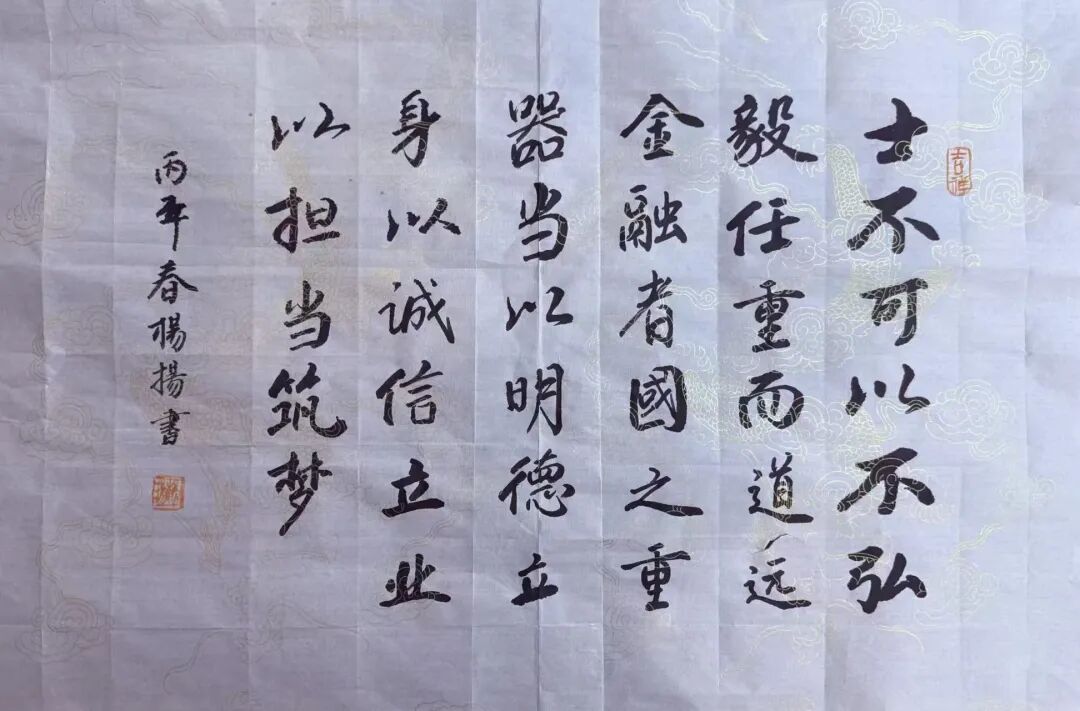 吉祥
士不可以不弘
毅任重而道远
金融者國之重
器当以明德立
身以诚信立业
以担当筑梦
丙午春楊揚書